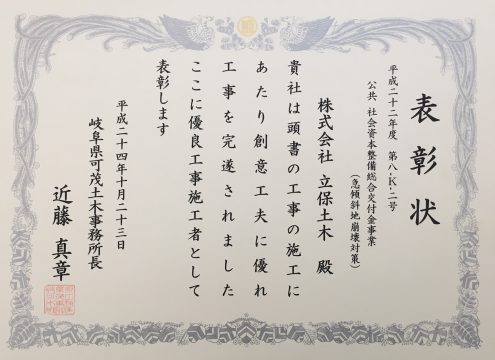 表彰状
平成二十二年度 第八-K-二号
公共 社会資本整備総合交付金事業
(急傾斜地崩壊対策)
株式会社 立保土木 殿
貴社は頭書の工事の施工に
あたり創意工夫に優れ
工事を完遂されました
ここに優良工事施工者として
表彰します
平成二十四年十月二十三日
岐阜県可茂土木事務所長
近藤 真章